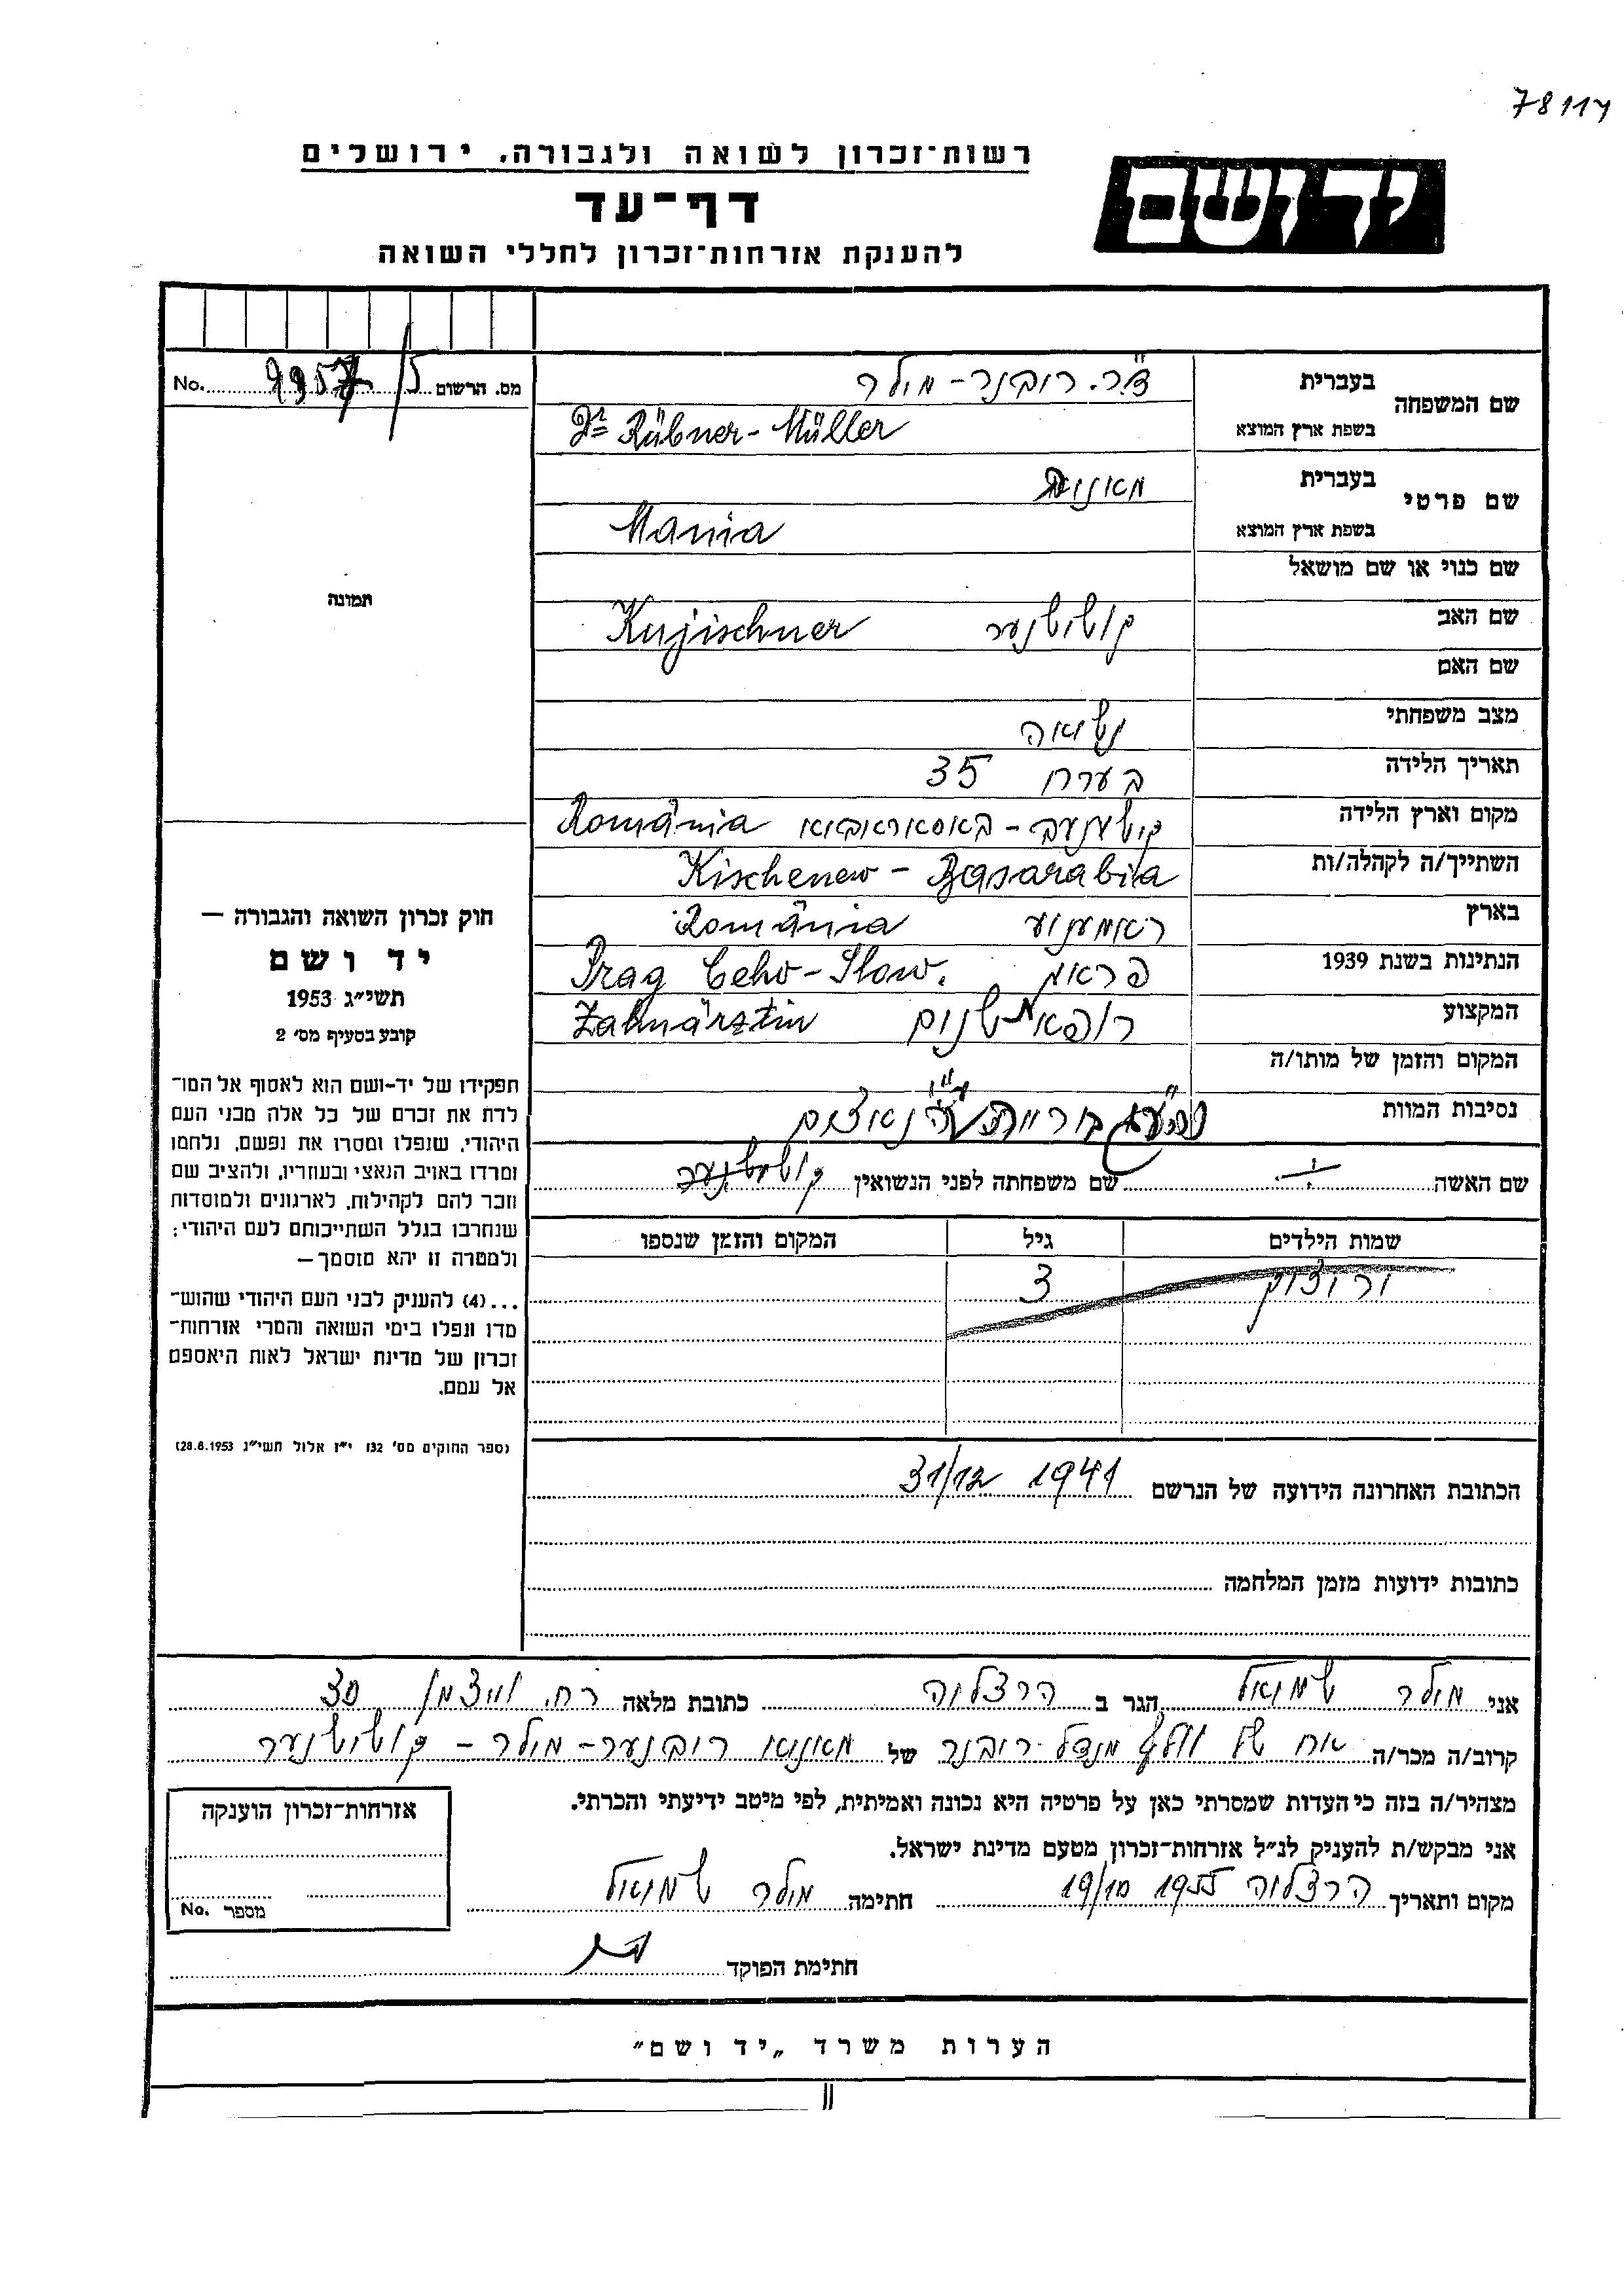 78114
רשות־זכרון לשואה ולגבורה, ירושלים
יד ושם
דף־עד
להענקת אזרחות־זכרון לחללי השואה
No. מס. הרשום
שם המשפחה
בעברית
ד״ר. רובנר - מילר
בשפת ארץ המוצא
Dr Rübner - Müller
שם פרטי
בעברית
בשפת ארץ המוצא
Mania
תמונה
שם כנוי או שם מושאל
שם האב קושישנער Kujischner
שם האם
מצב משפחתי נשואה
תאריך הלידה בערך 35
מקום וארץ הלידה קישענעב - באסאראביא România
השתייך/ה לקהלה/ות Kischenew - Basarabia
בארץ ראמעניע România
הנתינות בשנת 1939 פראג Prag Ceho-Slow.
המקצוע רופאת שנים Zahnärztin
המקום והזמן של מותו/ה
נסיבות המוות נאצים
שם האשה שם משפחתה לפני הנשואין
שמות הילדים גיל המקום והזמן שנספו
3
הכתובת האחרונה הידועה של הנרשם 31/12 1941
כתובות ידועות מזמן המלחמה
חוק זכרון השואה והגבורה —
יד ושם
תשי״ג 1953
קובע בסעיף מס׳ 2
תפקידו של יד-ושם הוא לאסוף אל המו־
לדת את זכרם של כל אלה מבני העם
היהודי, שנפלו ומסרו את נפשם, נלחמו
ומרדו באויב הנאצי ובעוזריו, ולהציב שם
וזכר להם לקהילות, לארגונים ולמוסדות
שנחרבו בגלל השתייכותם לעם היהודי;
ולמטרה זו יהא מוסמך —
...(4) להעניק לבני העם היהודי שהוש־
מדו ונפלו בימי השואה והמרי אזרחות־
זכרון של מדינת ישראל לאות היאספם
אל עמם.
(ספר החוקים מס׳ 132 י״ז אלול תשי״ג 28.8.1953)
אני מילר שמואל הגר ב הרצליה כתובת מלאה רח. וויצמן 30
קרוב/ה מכר/ה אח של וולף מנדל רובנר של מאניא רובנער - מילר - קושישנער
מצהיר/ה בזה כי העדות שמסרתי כאן על פרטיה היא נכונה ואמיתית, לפי מיטב ידיעתי והכרתי.
אני מבקש/ת להעניק לנ״ל אזרחות־זכרון מטעם מדינת ישראל.
מקום ותאריך הרצליה 19/10 1955 חתימה מילר שמואל
חתימת הפוקד
אזרחות־זכרון הוענקה
No. מספר
הערות משרד „יד ושם״